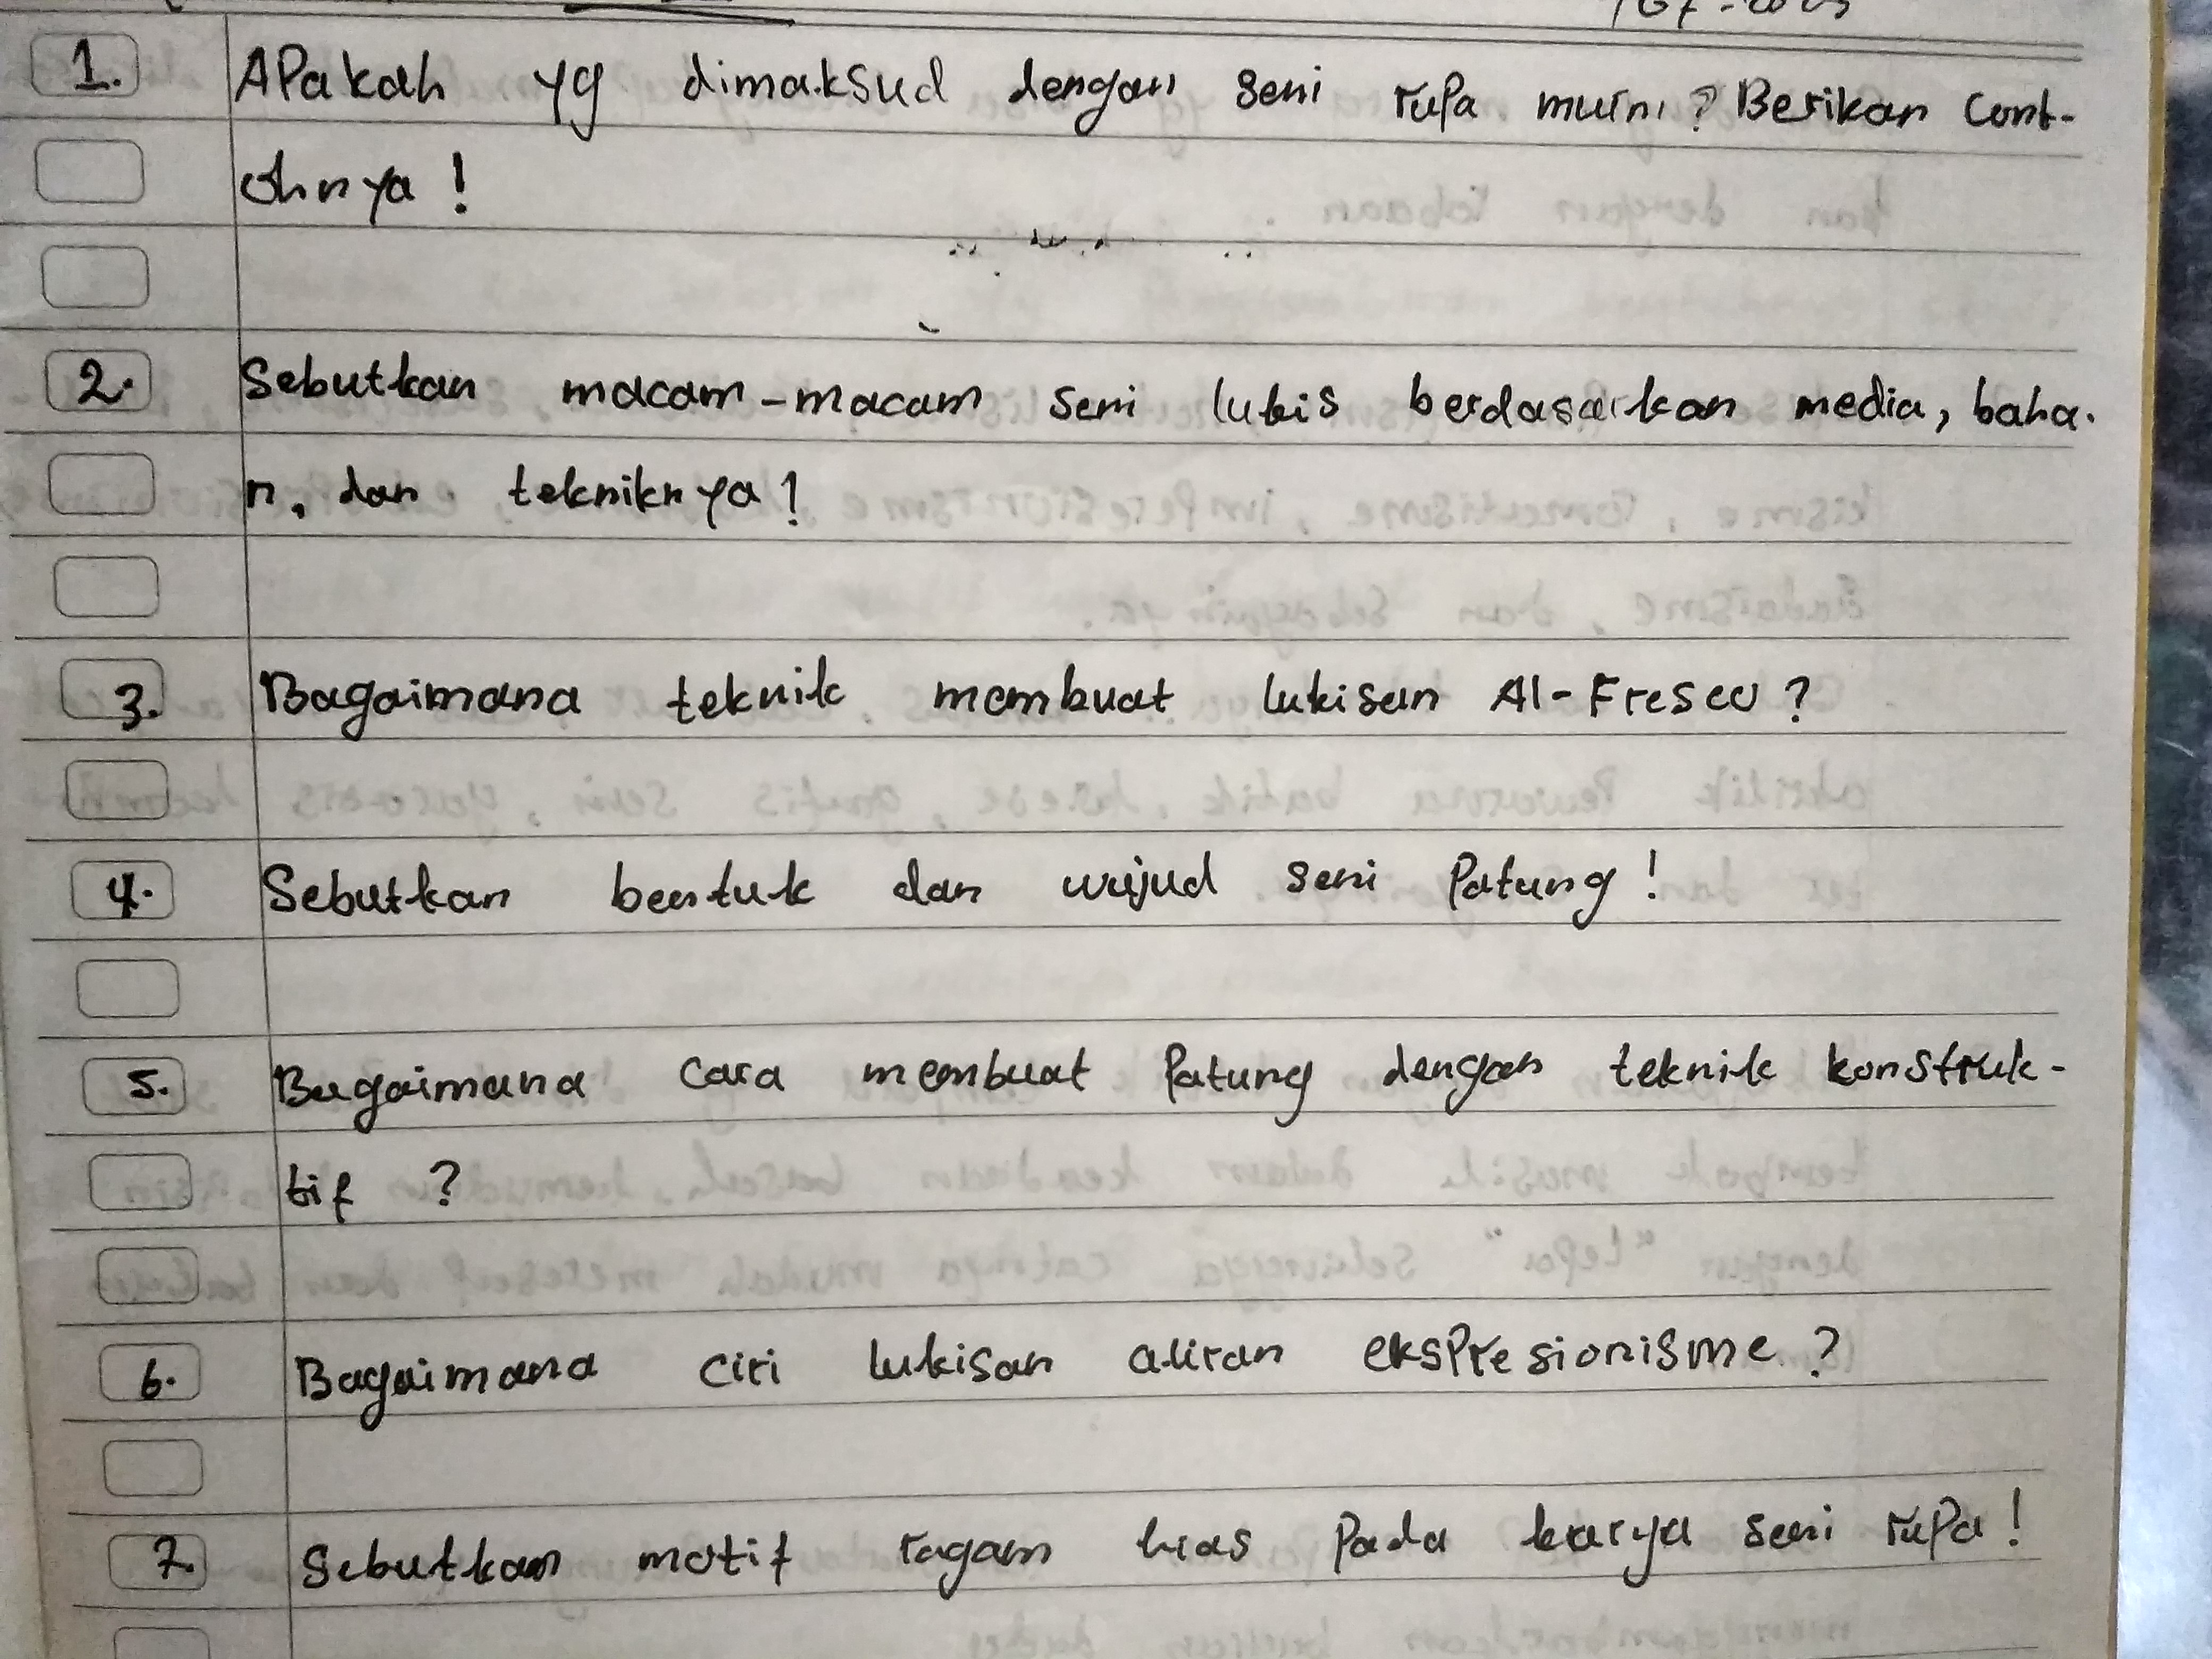 1. Apakah yg dimaksud dengan seni rupa murni? Berikan cont-
ohnya!
2. Sebutkan macam-macam seni lukis berdasarkan media, baha-
n, dan tekniknya!
3. Bagaimana teknik membuat lukisan Al-Fresco?
4. Sebutkan bentuk dan wujud seni Patung!
5. Bagaimana cara membuat Patung dengan teknik konstruk-
tif ?
6. Bagaimana ciri lukisan aliran eksPresionisme ?
7. Sebutkan motif ragam hias Pada karya seni rupa!